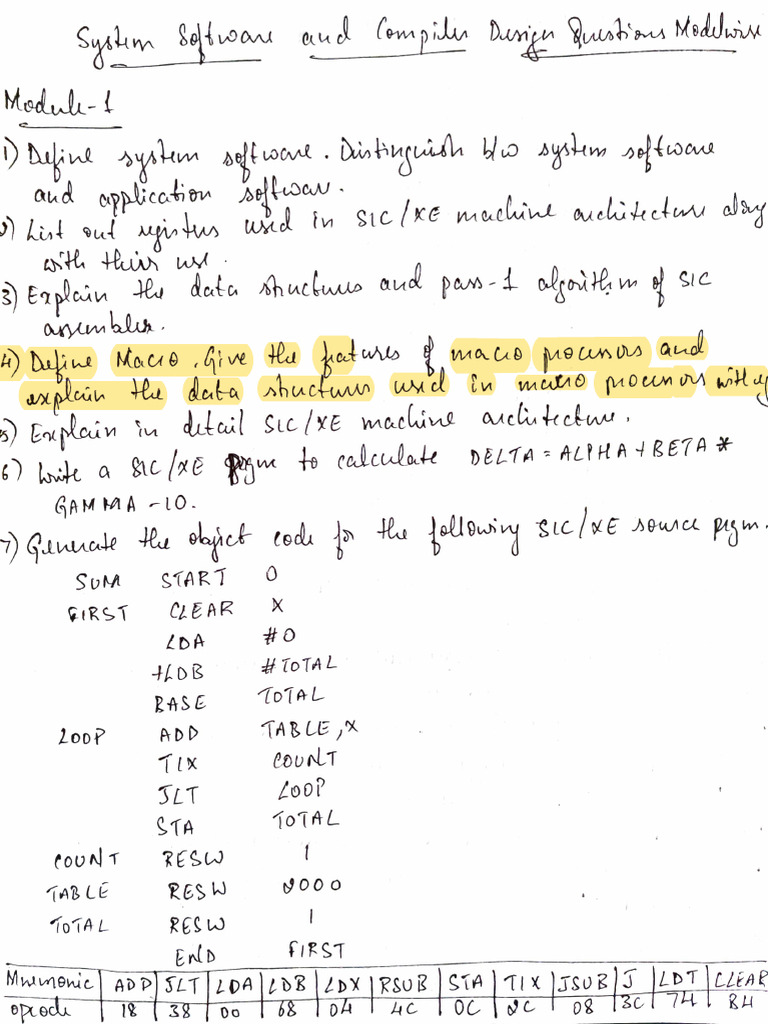 System Software and Compiler Design Questions Modelwise
Module-1
1) Define system software. Distinguish b/w system software
and application software.
2) List out registers used in SIC/XE machine architecture along
with their use.
3) Explain the data structures and pass-1 algorithm of SIC
assembler.
4) Define Macro. Give the features of macro processors and
explain the data structures used in macro processors with eg
5) Explain in detail SIC/XE machine architecture.
6) Write a SIC/XE pgm to calculate DELTA = ALPHA + BETA *
GAMMA - 10.
7) Generate the object code for the following SIC/XE source pgm.
SUM START 0
FIRST CLEAR X
LDA #0
+LDB #TOTAL
BASE TOTAL
LOOP ADD TABLE,X
TIX COUNT
JLT LOOP
STA TOTAL
COUNT RESW 1
TABLE RESW 2000
TOTAL RESW 1
END FIRST
Mnemonic ADD JLT LDA LDB LDX RSUB STA TIX JSUB J LDT CLEAR
opcode 18 38 00 68 04 4C 0C 2C 08 3C 74 B4